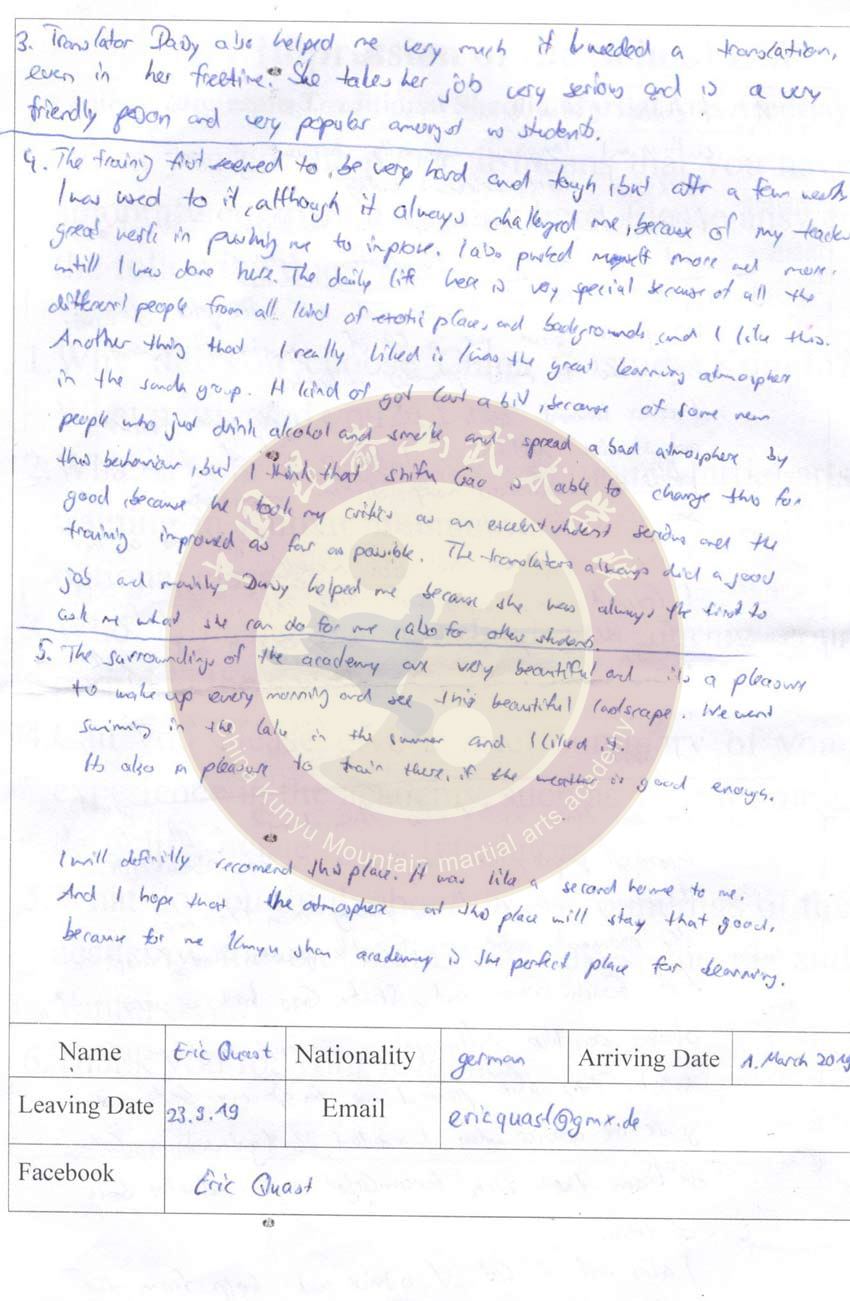 3. Translator Daisy also helped me very much if I needed a translation,
even in her freetime. She takes her job very serious and is a very
friendly person and very popular amongst us students.
4. The training first seemed to be very hard and tough, but after a few weeks
I was used to it, although it always challenged me, because of my teachers
great work in pushing me to improve. I also pushed myself more and more
untill I was done here. The daily life here is very special because of all the
different people from all kind of exotic places and backgrounds and I like this.
Another thing that I really liked is was the great learning atmosphere
in the sanda group. It kind of got lost a bit, because of some new
people who just drink alcohol and smoke and spread a bad atmosphere by
this behaviour, but I think that shifu Gao is able to change this for
good, because he took my critics as an excelent student serious and the
training improved as far as possible. The translators always did a good
job and mainly Daisy helped me because she was always the first to
ask me what she can do for me, also for other students.
5. The surroundings of the academy are very beautiful and its a pleasure
to wake up every morning and see this beautiful landscape. We went
swimming in the lake in the summer and I liked it.
Its also a pleasure to train there, if the weather is good enough.
I will definitly recomend this place. It was like a second home to me.
And I hope that the atmosphere at this place will stay that good,
because for me Kunyu shan academy is the perfect place for learning.
中国昆嵛山武术学院
China Kunyu Mountain martial arts academy
Name Eric Quast Nationality german Arriving Date 1. March 2019
Leaving Date 23.9.19 Email ericquast@gmx.de
Facebook Eric Quast